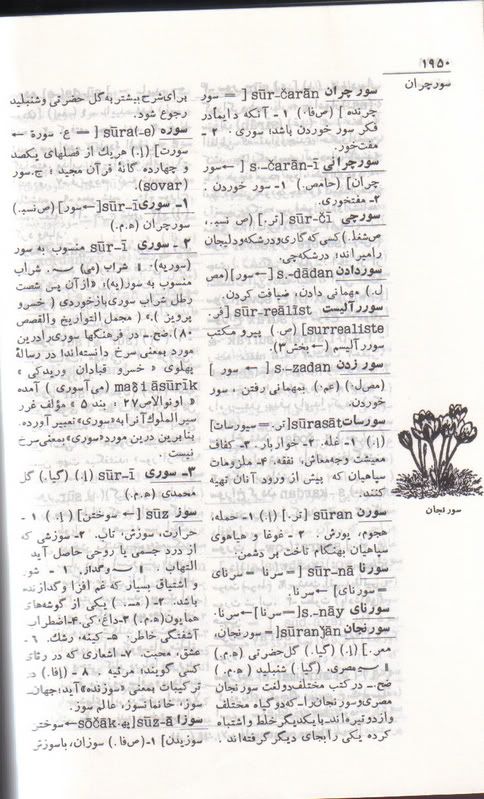 ۱۹۵۰
سورچران
سورچران sūr-čarān [ = سور
چرنده] (صفا.) ۱- آنکه دایماً در
فکر سور خوردن باشد؛ سوری. ۲-
مفت‌خور.
سورچرانی s.-čarān-ī [ ←سور
چران] (حامص.) ۱- سور خوردن.
۲- مفتخوری.
سورچی sūr-čī [تر.] (ص نسب.،
صشغل.) کسی که گاری و درشکه و دلیجان
را میراند؛ درشکه‌چی.
سوردادن s.-dādan [←سور](مص
ل.) مهمانی دادن، ضیافت کردن.
سوررآلیست sūr-reālīst [فر.
surrealiste] (ص.) پیرو مکتب
سوررآلیسم (←بخش۳).
سور زدن s.-zadan [← سور ]
(مص‌ل.) (عم.) بمهمانی رفتن، سور
خوردن.
سورسات sūrasāt [تر.= سیورسات]
(إ.) ۱- غله. ۲- خواربار. ۳- کفاف
معیشت وجه‌معاش، نفقه. ۴- ملزومات
سپاهیان که پیش از ورود آنان تهیه
کنند.
سورن sūran [تر.] (إ.) ۱- حمله،
هجوم، یورش. ۲- غوغا و هیاهوی
سپاهیان بهنگام تاخت بر دشمن.
سورنا sūr-nā [= سرنا = سرنای
= سورنای] ←سرنا.
سورنای s.-nāy [=سرنا]←سرنا.
سورنجان sūranǰān [= سورنجان،
معر.] (إ.) (گیا.) گل‌حضرتی (ه.م.)
‖ ـِ مصری. (گیا.) شنبلید (ه.م.)
ضح.- در کتب مختلف دولغت سورنجان
مصری و سورنجان را که دو گیاه مختلف
و از دو تیره‌اند، با یکدیگر خلط و اشتباه
کرده یکی را بجای دیگر گرفته‌اند.
برای شرح بیشتر به گل حضرتی و شنبلید
رجوع شود.
سوره sūra(-e) [= ع. سورة ←
سورت] (إ.) هر یك از فصلهای یکصد
و چهارده گانهٔ قرآن مجید؛ ج. سور
(sovar).
۱- سوری sūr-ī [←سور] (ص نسب.)
سورچران (ه.م.)
۲- سوری sūr-ī منسوب به سور
(سوریه). ‖ شراب (می) ـِ . شراب
منسوب به سور(یه): «از آن پس شصت
رطل شراب سوری بازخوردی (خسرو
پرویز).» (مجمل التواریخ والقصص
۸۰). ضح.- در فرهنگها سوری را درین
مورد بمعنی سرخ دانسته‌اند! در رسالهٔ
پهلوی «خسرو قبادان وریدکی»
maδ i āsūrīk (می آسوری) آمده
«اونوالا ص۲۷ : بند ۵» مؤلف غرر
سیر الملوك آنرا به «سوری» تعبیر آورده.
بنا برین درین مورد «سوری» بمعنی سرخ
نیست
۳- سوری sūr-ī (إ.) (گیا.) گل
محمدی (ه.م.)
سوز sūz [← سوختن] (إ.) ۱-
حرارت، سوزش، تاب. ۲- سوزشی که
از درد جسمی یا روحی حاصل آید
التهاب. ‖ ـُ وگداز. ۱- شور
و اشتیاق بسیار که غم افزا و گدازنده
باشد. ۲- (مس.) یکی از گوشه‌های
همایون (ه.م.) ۳- داغ، کی. ۴- اضطراب
آشفتگی خاطر. ۵- کینه، رشك. ۶-
عشق، محبت. ۷- اشعاری که در رثای
کسی گویند؛ مرثیه. ۸- (إفا.) در
ترکیبات بمعنی «سوزنده» آید: جهان-
سوز، خانمانسوز، عالم سوز.
سوزا sūz-ā [په. sōčāk ←سوختن
سوزیدن] ۱- (ص‌فا.) سوزان، با سوزش
سورنجان